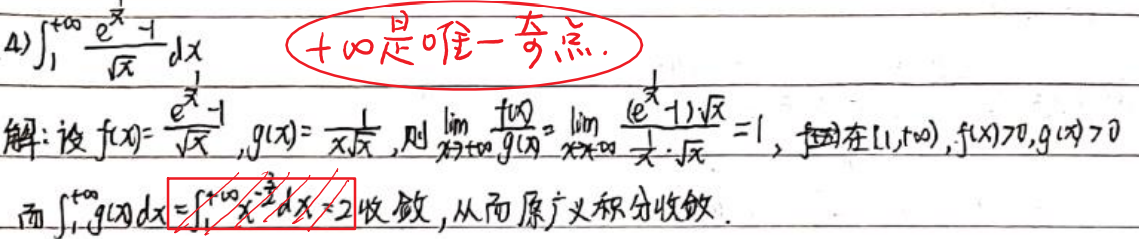 4) ∫₁^{+∞} \frac{e^{\frac{1}{x}}-1}{\sqrt{x}} dx
+∞是唯一奇点.
解:设 f(x)=\frac{e^{\frac{1}{x}}-1}{\sqrt{x}}, g(x)=\frac{1}{x\sqrt{x}}, 则 \lim_{x→+∞} \frac{f(x)}{g(x)} = \lim_{x→+∞} \frac{(e^{\frac{1}{x}}-1)·\sqrt{x}}{\frac{1}{x}·\sqrt{x}} =1, 在[1,+∞), f(x)>0, g(x)>0
而 ∫₁^{+∞} g(x)dx =∫₁^{+∞} x^{-\frac{3}{2}}dx =2收敛,从而原广义积分收敛.